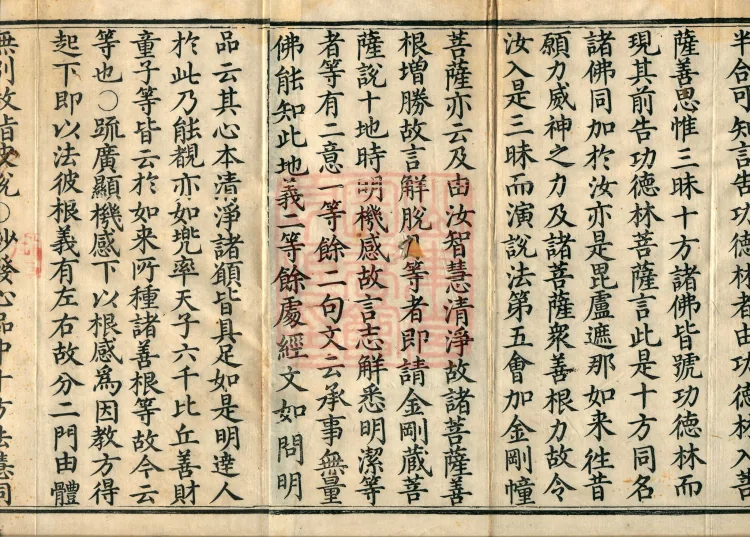 半合可知言告功德林者由功德林入善
薩善思惟三昧十方諸佛皆號功德林而
現其前告功德林菩薩言此是十方同名
諸佛同加於汝亦是毘盧遮那如来徃昔
願力威神之力及諸菩薩衆善根力故令
汝入是三昧而演說法第五會加金剛幢
菩薩亦云及由汝智慧清淨故諸菩薩善
根增勝故言解脫⺀等者即請金剛藏菩
薩說十地時明機感故言志解悉明潔等
者等有二意一等餘二句文云承事無量
佛能知此地義二等餘處經文如問明
品云其心本清淨諸願皆具足如是明達人
於此乃能覩亦如兜率天子六千比丘善財
童子等皆云於如来所種諸善根等故今云
等也〇疏廣顯機感下以根感爲因教方得
起下即以法彼根義有左右故分二門由體
無別故皆彼說〇鈔發心品中十方法慧同